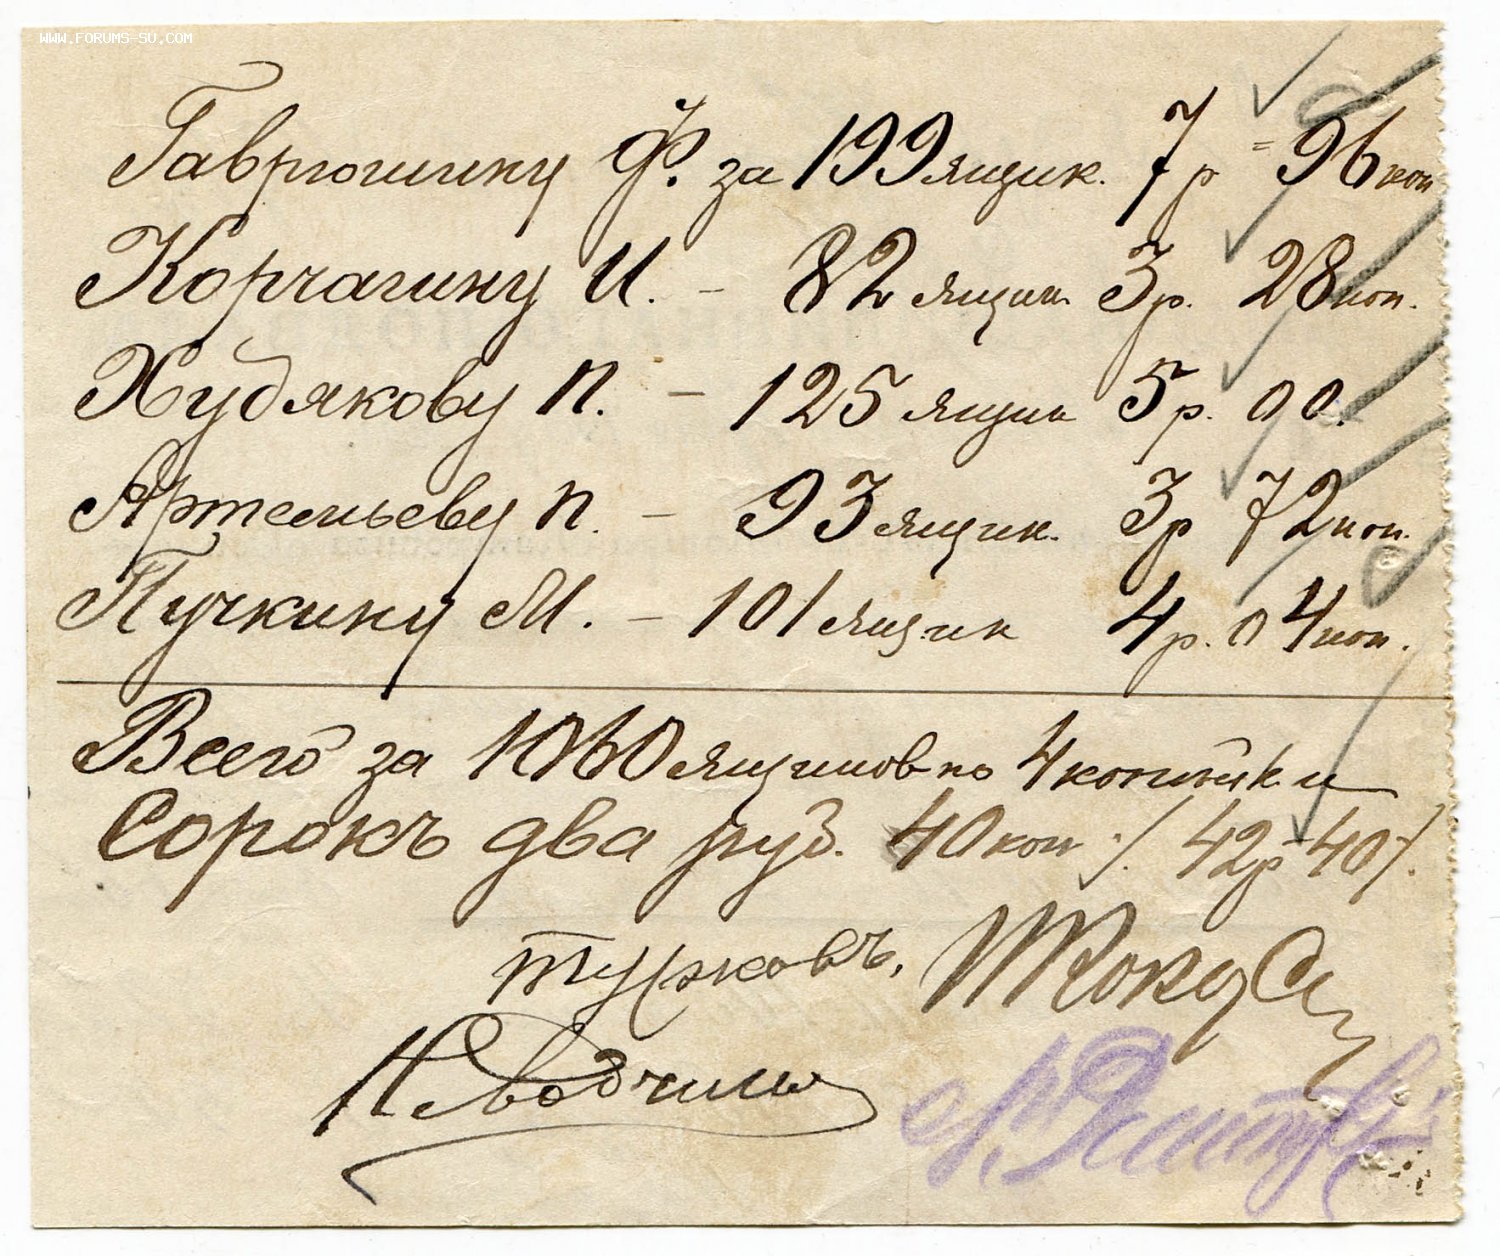 WWW.FORUMS-SU.COM
Гаврюшину Ф. за 199 ящик. 7 р = 96 коп
Корчагину И. – 82 ящик. 3 р. 28 коп.
Худякову П. – 125 ящик 5 р. 00.
Артемьеву П. – 93 ящик. 3 р 72 коп.
Пучкину М. – 101 ящик 4 р. 04 коп.
Всего за 1060 ящиков по 4 копейки
Сорокъ два руб. 40 коп ·/. 42 р 40 /.
Турковъ.